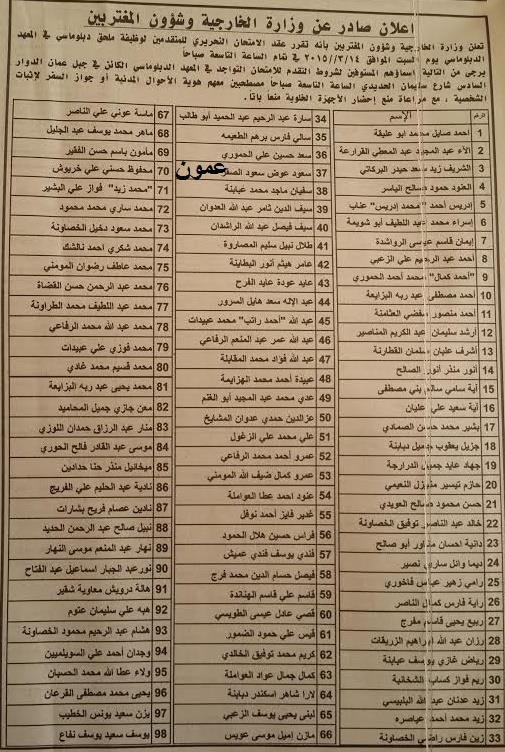 اعلان صادر عن وزارة الخارجية وشؤون المغتربين
تعلن وزارة الخارجية وشؤون المغتربين بأنه تقرر عقد الامتحان التحريري للمتقدمين لوظيفة ملحق دبلوماسي في المعهد
الدبلوماسي يوم السبت الموافق ٢٠١٥/٣/١٤ في تمام الساعة التاسعة صباحاً
يرجى من التالية اسماؤهم المستوفين لشروط التقدم للامتحان التواجد في المعهد الدبلوماسي الكائن في جبل عمان الدوار
السادس شارع سليمان الحديدي الساعة التاسعة صباحاً مصطحبين معهم هوية الأحوال المدنية أو جواز السفر لإثبات
الشخصية ، مع مراعاة منع إحضار الأجهزة الخلوية منعاً باتاً.
الرقم الإسم
1 احمد صايل محمد ابو عليقة
2 الآء عبد المجيد عبد المعطي القرارعة
3 الشريف زيد سعد حيدر البركاتي
4 العنود حمود صالح الياسر
5 إدريس أحمد "محمد إدريس" عناب
6 إسراء محمد عبد اللطيف أبو شويمة
7 إيمان قاسم عيسى الرواشدة
8 ابراهيم أحمد علي الزعبي
9 "أحمد كمال" محمد أحمد الحموري
10 أحمد مصطفى عبد ربه البزايعة
11 أحمد منصور مفضي العثامنة
12 أرشد سليمان عبد الكريم المناصير
13 أشرف عليان سلمان القطارنة
14 أنور منذر أنور الصالح
15 آية سامي سالم بني مصطفى
16 آية سعيد علي عليان
17 بشير محمد حسن الصمادي
18 جزيل يعقوب جميل دبابنة
19 جهاد عايد جميل الدرارجة
20 حازم تيسير منيزل النعيمي
21 حسن محمود صالح العويدي
22 خالد عبد الناصر توفيق الخصاونة
23 دانية احسان مناور أبو صالح
24 ديما وائل ساري نصير
25 رامي زهير عباس فاخوري
26 راية فارس كمال الناصر
27 ربيع يحيى قاسم مفرج
28 رزان عبد الله ابراهيم الزريقات
29 رياض غازي يوسف عبابنة
30 ريم فواز كساب الشخانبة
31 زيد عدنان عبد الله البلبيسي
32 زيد محمد احمد عياصره
33 زين فارس راضي الخصاونة
34 سارة عبد الرحيم عبد الحميد أبو طالب
35 سالي فارس برهم الطعيمه
36 سعد حسين علي الحموري
37 سعود عوض سعود
عمون
38 سفيان ماجد محمد عبابنة
39 سيف الدين ثامر عبد الله العدوان
40 سيف فيصل عبد الله الراشدان
41 طلال نبيل سليم المصاروة
42 عامر هيثم أنور البطاينة
43 عايد عودة عايد الفرح
44 عبد الإله سعد هايل السرور
45 عبد الله "أحمد راتب" محمد عبيدات
46 عبد الله عمر عبد المنعم الرفاعي
47 عبد الله فؤاد محمد المقابلة
48 عبيدة أحمد محمد الهزايمة
49 عدي محمد عبد المجيد أبو الغنم
50 عزالدين حمدي عدوان المشايخ
51 علي محمد علي الزغول
52 عمرو أحمد محمد الرفاعي
53 عمرو كمال ضيف الله المومني
54 عنود احمد عطا العواملة
55 غدير فايز أحمد نوفل
56 فراس حسين هلال الحمود
57 فندي يوسف فندي عميش
58 فيصل حسام الدين محمد فرج
59 قاسم علي قاسم الهناندة
60 قصي عادل عيسى الطويسي
61 قيس علي حمود الضمور
62 كريم محمد توفيق الخالدي
63 كمال جمال عواد العواملة
64 لارا شاهر اسكندر دبابنة
65 لبنى يحيى يوسف الزعبي
66 مازن إميل موسى عويس
67 ماسة عوني علي الناصر
68 ماهر محمد يوسف عبد الجليل
69 مأمون باسم حسن الفقير
70 محفوظ حسني علي خريوش
71 "محمد زيد" فواز علي البشير
72 محمد ساري محمد محمود
73 محمد سعود دخيل الخصاونة
74 محمد شكري أحمد نالشك
75 محمد عاطف رضوان المومني
76 محمد عبد الرحمن حسن القضاة
77 محمد عبد اللطيف محمد الطراونة
78 محمد عبد الله محمد الرفاعي
79 محمد فوزي علي عبيدات
80 محمد قسيم محمد غادي
81 محمد يحيى عبد ربه البزايعة
82 معن جازي جميل المحاميد
83 منار عبد الرزاق حمدان اللوزي
84 موسى عبد القادر فالح الحوري
85 ميخائيل منذر حنا حدادين
86 نادية عبد الحليم علي الفريج
87 نادين عصام فريح بشارات
88 نبيل صالح عبد الرحمن الحديد
89 نهار عبد المنعم موسى النهار
90 نورعبد الجبار اسماعيل عبد الفتاح
91 هالة درويش معاوية شقير
92 هبه علي سليمان عتوم
93 هشام عبد الرحيم محمود الخصاونة
94 وجدان أحمد علي السويلميين
95 ولاء عطا الله محمد الحسبان
96 يحيى محمد مصطفى القرعان
97 يزن سعيد يونس الخطيب
98 يوسف سعيد يوسف نفاع